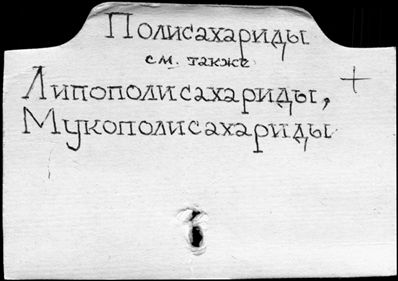 Полисахариды
см. также
Липополисахариды,
Мукополисахариды